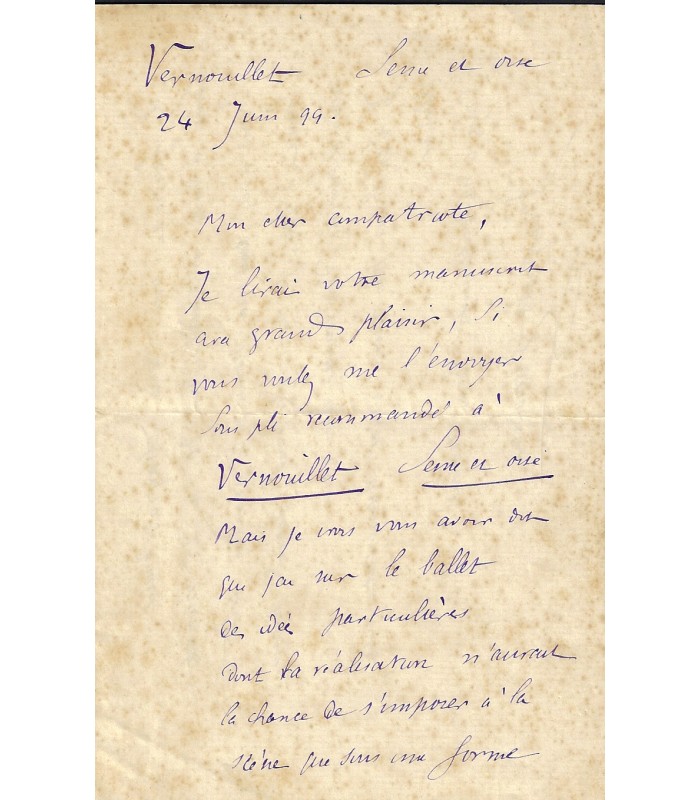 Vernouillet Seine et oise
24 Juin 99.
Mon cher compatriote,
Je lirai votre manuscrit
avec grand plaisir, si
vous voulez me l'envoyer
sous pli recommandé à
Vernouillet Seine et oise
Mais je crois vous avoir dit
que j'ai sur le ballet
des idées particulières
dont la réalisation n'aurait
la chance de s'imposer à la
scène que sous une forme